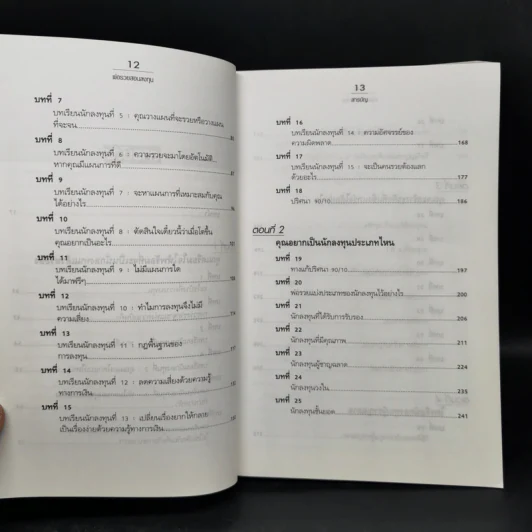 12
พ่อรวยสอนลงทุน
บทที่ 7
บทเรียนนักลงทุนที่ 5 : คุณวางแผนที่จะรวยหรือวางแผน
ที่จะจน
บทที่ 8
บทเรียนนักลงทุนที่ 6 : ความรวยจะมาโดยอัตโนมัติ
หากคุณมีแผนการที่ดี
บทที่ 9
บทเรียนนักลงทุนที่ 7 : จะหาแผนการที่เหมาะสมกับคุณ
ได้อย่างไร
บทที่ 10
บทเรียนนักลงทุนที่ 8 : ตัดสินใจเดี๋ยวนี้ว่าเมื่อโตขึ้น
คุณอยากเป็นอะไร
บทที่ 11
บทเรียนนักลงทุนที่ 9 : ไม่มีแผนการใด
ได้มาฟรีๆ
บทที่ 12
บทเรียนนักลงทุนที่ 10 : ทำไมการลงทุนจึงไม่มี
ความเสี่ยง
บทที่ 13
บทเรียนนักลงทุนที่ 11 : กฎพื้นฐานของ
การลงทุน
บทที่ 14
บทเรียนนักลงทุนที่ 12 : ลดความเสี่ยงด้วยความรู้
ทางการเงิน
บทที่ 15
บทเรียนนักลงทุนที่ 13 : เปลี่ยนเรื่องยากให้กลาย
เป็นเรื่องง่ายด้วยความรู้ทางการเงิน
13
สารบัญ
บทที่ 16
บทเรียนนักลงทุนที่ 14 : ความอัศจรรย์ของ
ความผิดพลาด 168
บทที่ 17
บทเรียนนักลงทุนที่ 15 : จะเป็นคนรวยต้องแลก
ด้วยอะไร 177
บทที่ 18
ปริศนา 90/10 186
ตอนที่ 2
คุณอยากเป็นนักลงทุนประเภทไหน
บทที่ 19
ทางแก้ปริศนา 90/10 197
บทที่ 20
พ่อรวยแบ่งประเภทของนักลงทุนไว้อย่างไร 200
บทที่ 21
นักลงทุนที่ได้รับการรับรอง 206
บทที่ 22
นักลงทุนที่มีคุณภาพ 211
บทที่ 23
นักลงทุนผู้ชาญฉลาด
บทที่ 24
นักลงทุนวงใน 235
บทที่ 25
นักลงทุนชั้นยอด 241